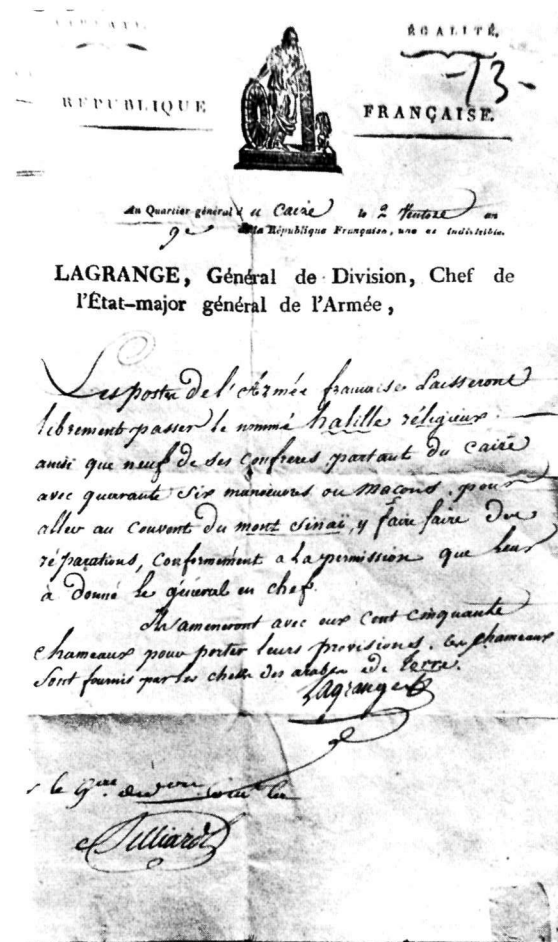 ÉGALITÉ.
-13-
RÉPUBLIQUE FRANÇAISE.
Au Quartier général au Caire le 2 Ventose an
9e de la République Française, une et indivisible.
LAGRANGE, Général de Division, Chef de
l'État-major général de l'Armée,
Les postes de l'Armée française Laisseront
librement passer le nommé halille réligieux
ainsi que neuf de ses confreres partant du Caire
avec quarante Six manoeuvres ou Maçons, pour
aller au Couvent du mont Sinaï, y faire faire des
réparations, Conformement a La permission que leur
à donné le général en chef.
Ils ameneront avec eux Cent Cinquante
Chameaux pour porter leurs provisions. les Chameaux
Sont fournis par les cheks des arabes de Terre.
Lagrange
le
Belliard